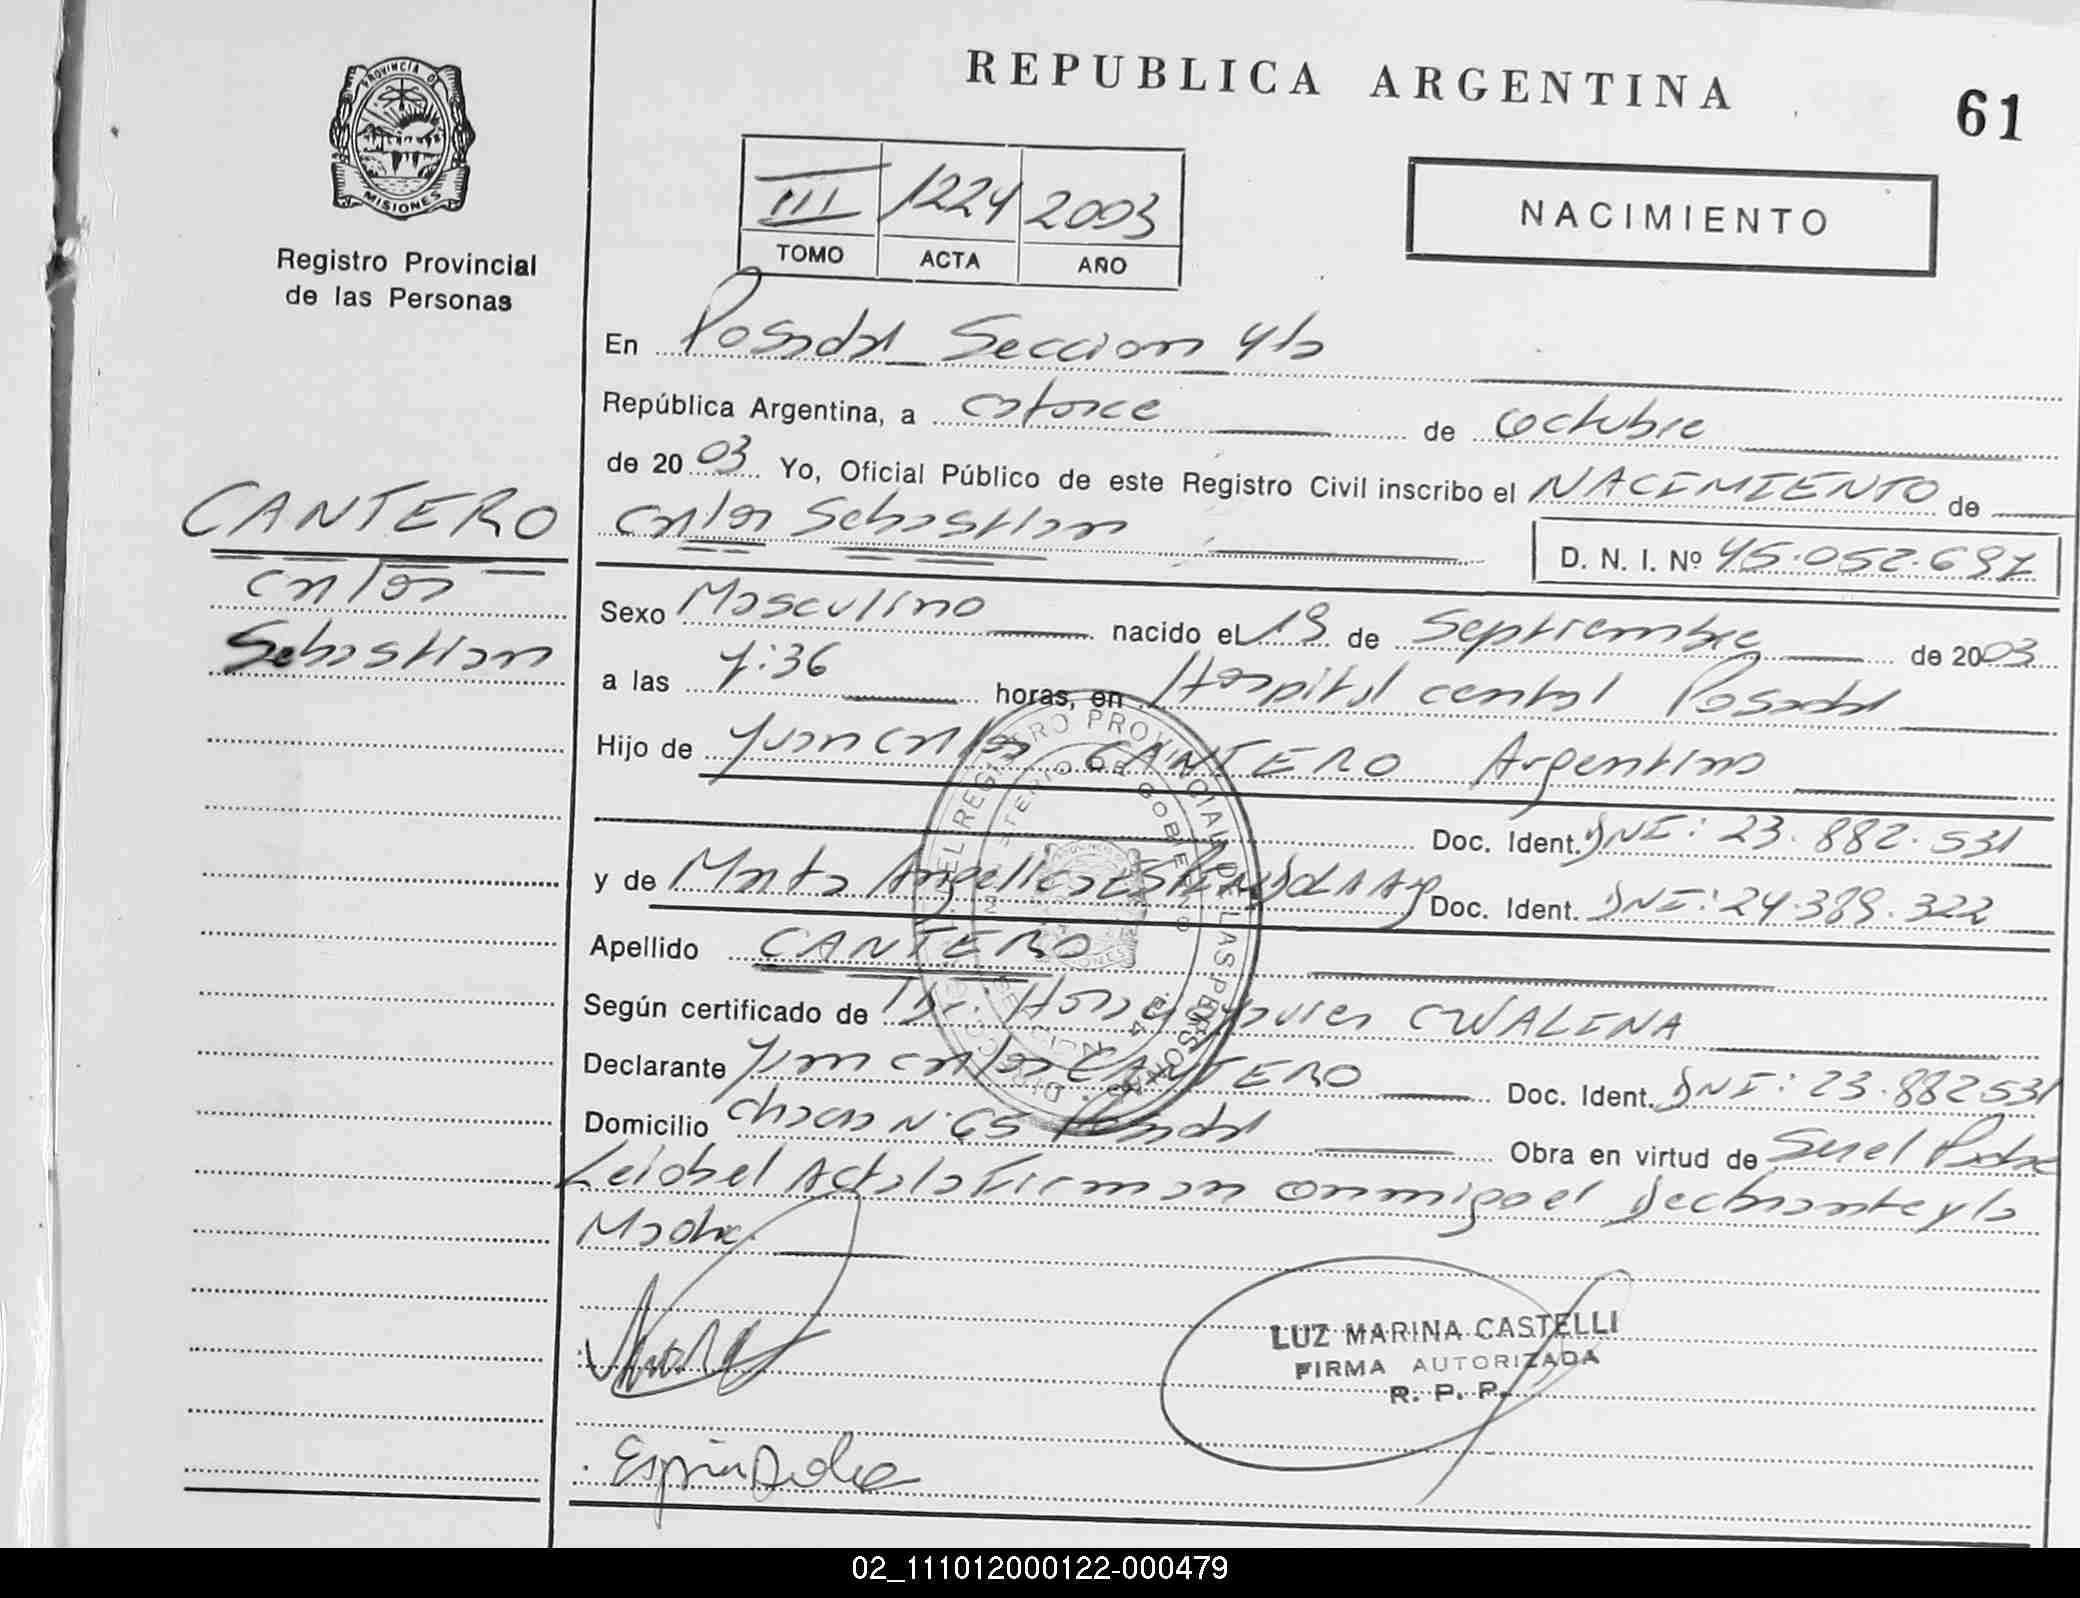 REPUBLICA ARGENTINA
61
PROVINCIA DE MISIONES
Registro Provincial
de las Personas
III 1224 2003
TOMO ACTA AÑO
NACIMIENTO
En Posadas Seccion 4ta
República Argentina, a catorce de octubre
de 2003 Yo, Oficial Público de este Registro Civil inscribo el NACIMIENTO de
Carlos Sebastian D. N. I. Nº 45.052.697
CANTERO
Carlos
Sebastian
Sexo Masculino nacido el 19 de Septiembre de 2003
a las 7:36 horas, en Hospital central Posadas
Hijo de Juan Carlos CANTERO Argentino
Doc. Ident. DNI: 23.882.531
y de Marta Angelica ESPINDOLA Arg Doc. Ident. DNI: 24.389.322
Apellido CANTERO
Según certificado de Dr. Javier CWALINA
Declarante Juan Carlos CANTERO Doc. Ident. DNI: 23.882531
Domicilio Chacra N. Posadas Obra en virtud de Ser el Padre
Leida el Acta la Firman conmigo el Declarante y la
Madre
LUZ MARINA CASTELLI
FIRMA AUTORIZADA
R. P. P.
Espindola
02_111012000122-000479